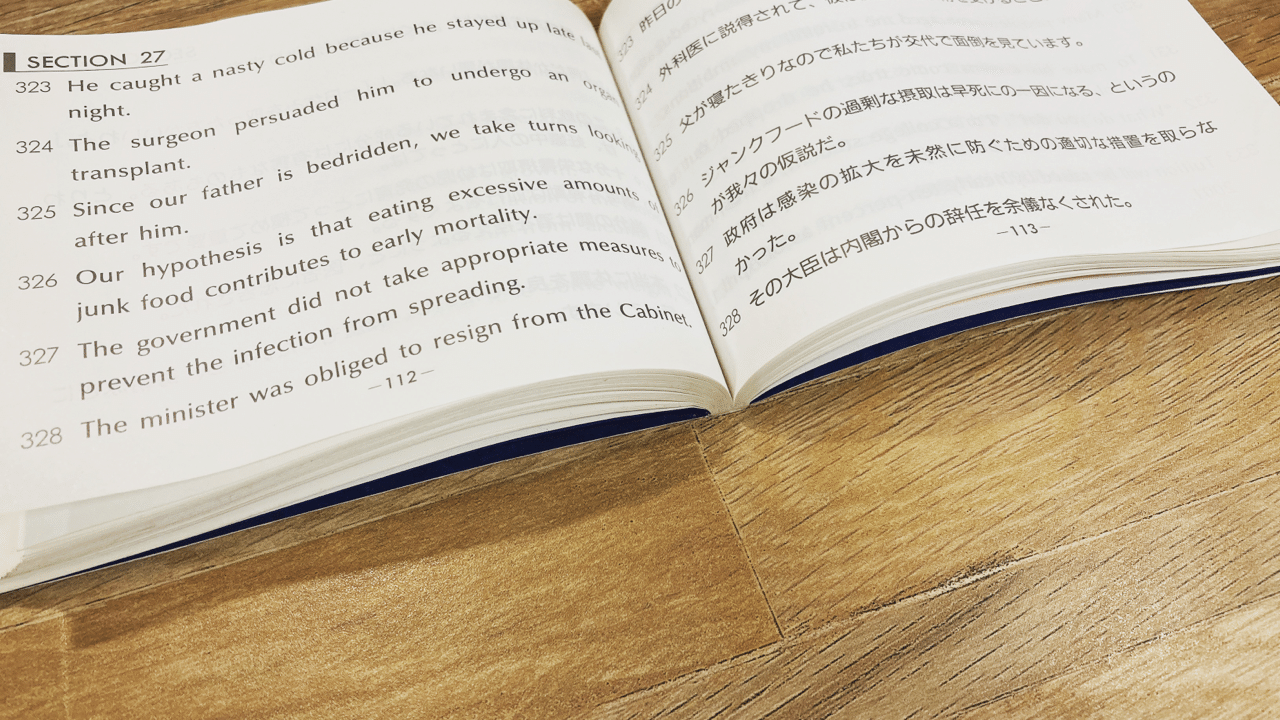 SECTION 27
323 He caught a nasty cold because he stayed up late last
night.
324 The surgeon persuaded him to undergo an organ
transplant.
325 Since our father is bedridden, we take turns looking
after him.
326 Our hypothesis is that eating excessive amounts of
junk food contributes to early mortality.
327 The government did not take appropriate measures to
prevent the infection from spreading.
328 The minister was obliged to resign from the Cabinet.
—112—
323 昨日の
324 外科医に説得されて、
325 父が寝たきりなので私たちが交代で面倒を見ています。
326 ジャンクフードの過剰な摂取は早死にの一因になる、というの
が我々の仮説だ。
327 政府は感染の拡大を未然に防ぐための適切な措置を取らな
かった。
328 その大臣は内閣からの辞任を余儀なくされた。
—113—